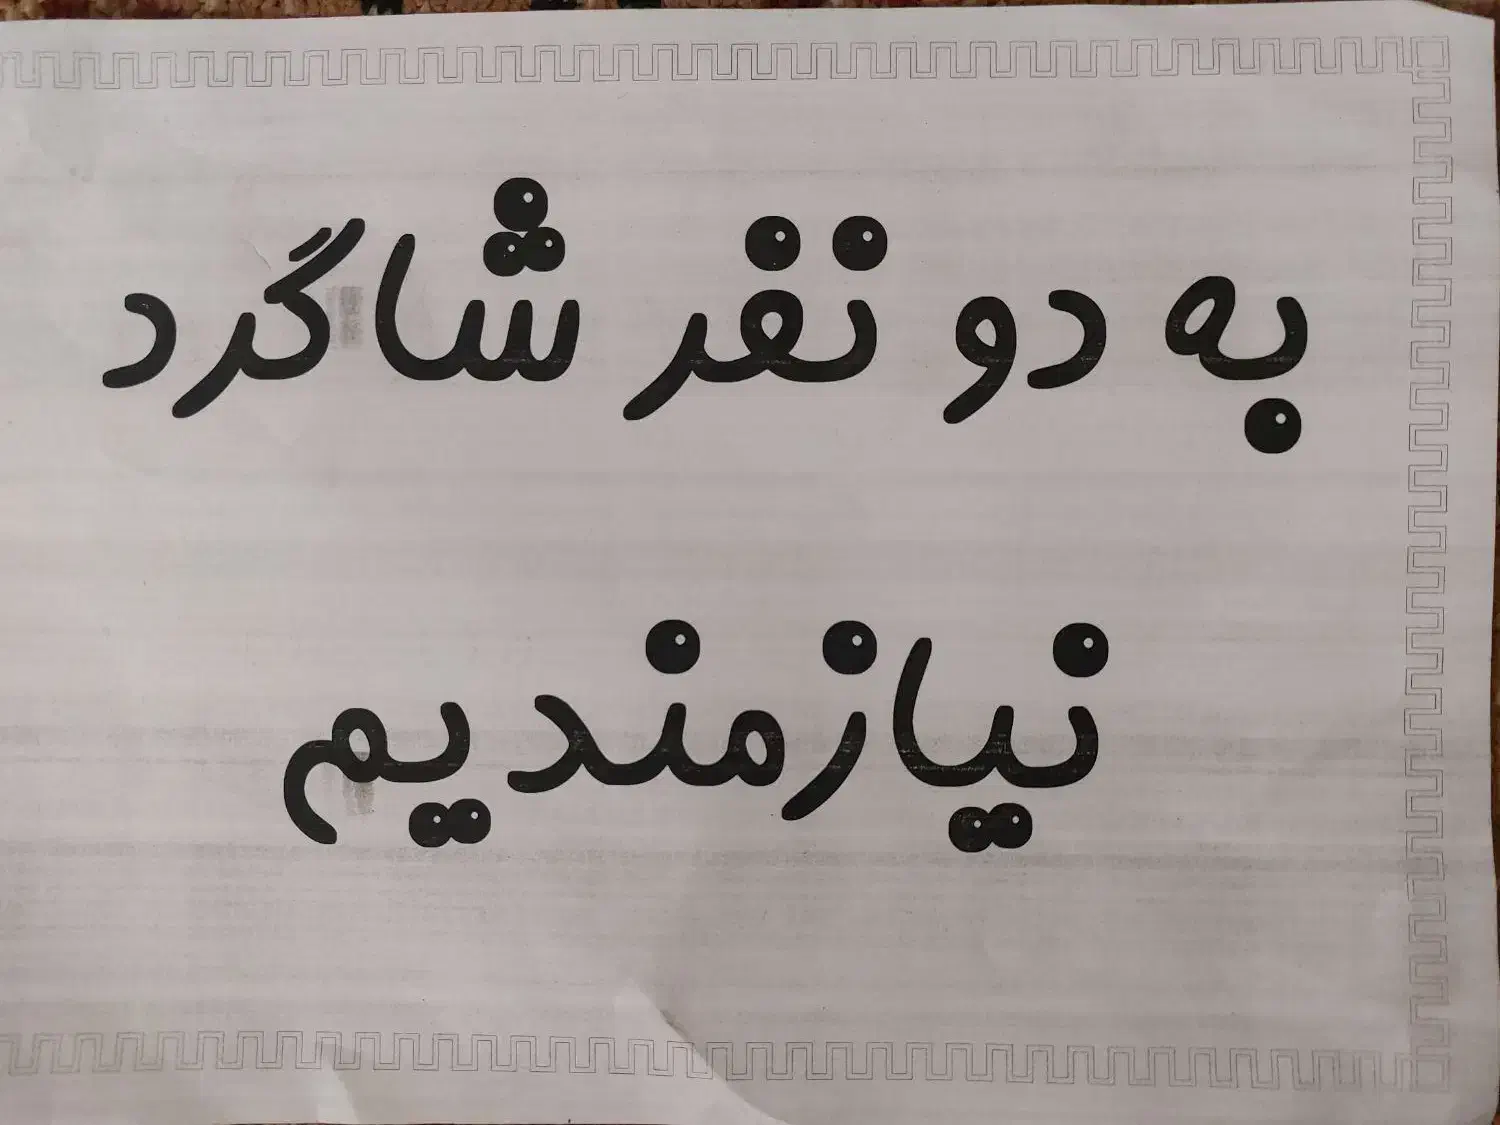 به دو نفر شاگرد
نیازمندیم